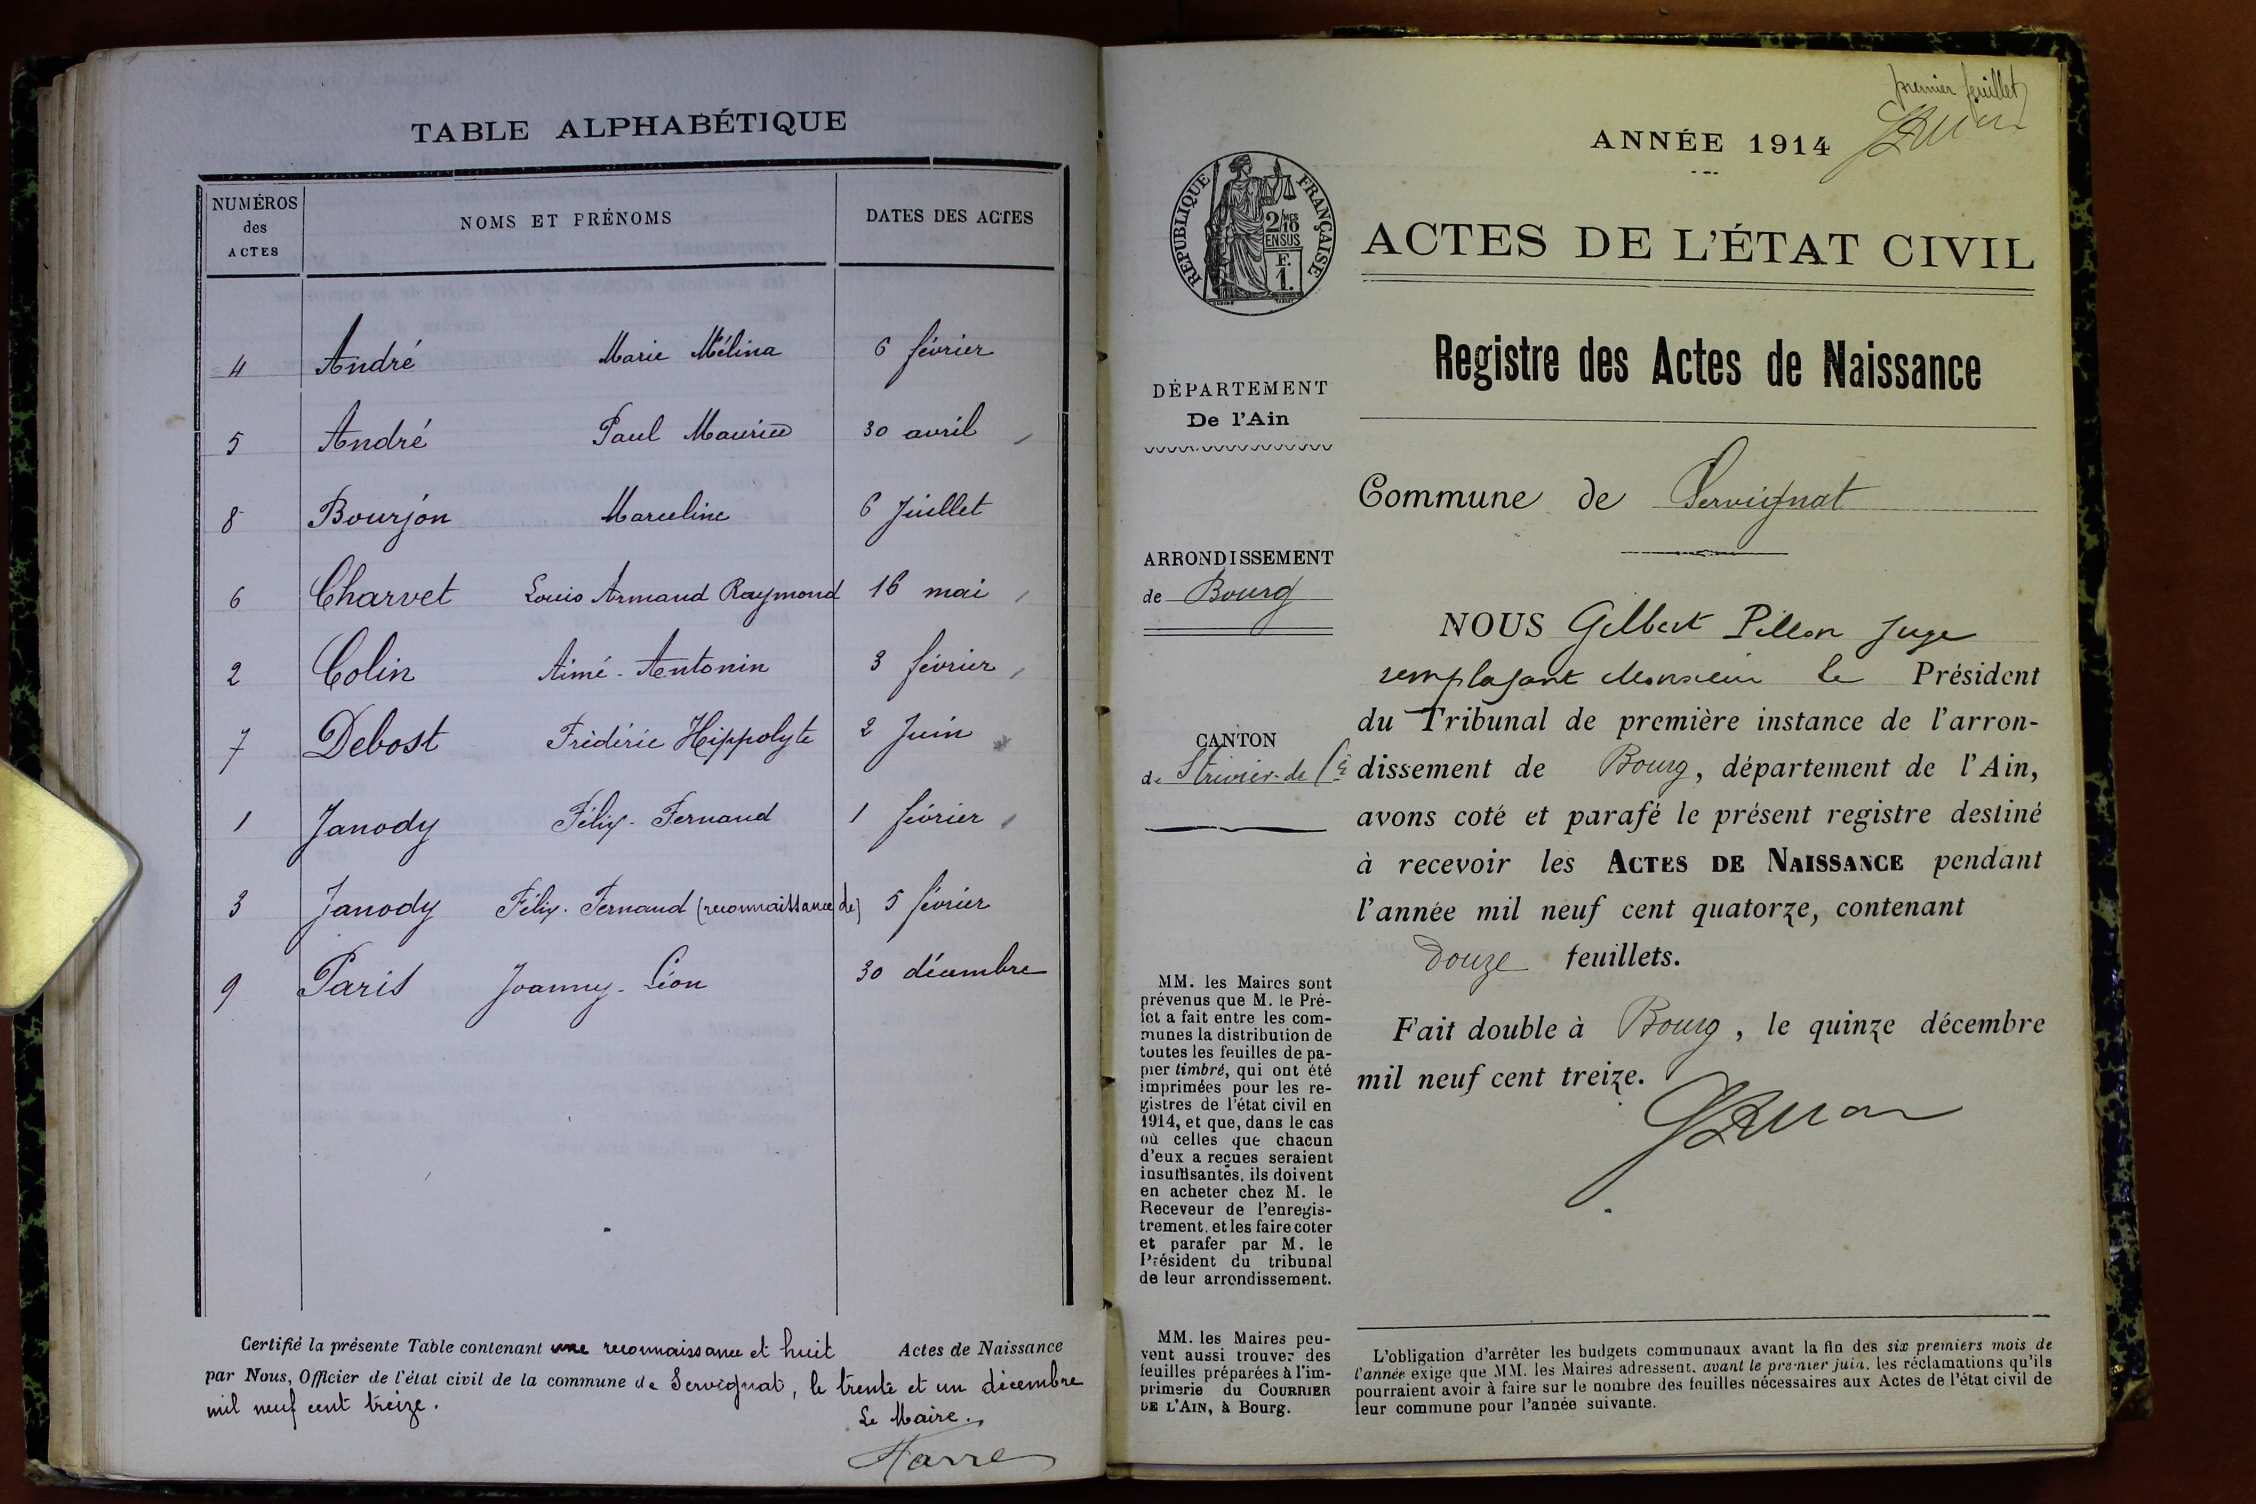 TABLE ALPHABÉTIQUE
NUMÉROS des ACTES
NOMS ET PRÉNOMS
DATES DES ACTES
4 André Marie Mélina 6 février
5 André Paul Maurice 30 avril
8 Bourjon Marceline 6 Juillet
6 Charvet Louis Armand Raymond 16 mai
2 Colin Aimé-Antonin 3 février
7 Debost Frédéric Hippolyte 2 Juin
1 Janody Félix-Fernand 1 février
3 Janody Félix-Fernand (reconnaissance de) 5 février
9 Paris Joanny-Léon 30 décembre
Certifié la présente Table contenant une reconnaissance et huit Actes de Naissance
par Nous, Officier de l'état civil de la commune de Servignat, le trente et un décembre
mil neuf cent treize.
Le Maire.
premier feuillet
ANNÉE 1914
RÉPUBLIQUE FRANÇAISE
2/10 MES
EN SUS
F.
1.
ACTES DE L'ÉTAT CIVIL
Registre des Actes de Naissance
DÉPARTEMENT
De l'Ain
Commune de Servignat
ARRONDISSEMENT
de Bourg
CANTON
de St Trivier-de-Cs
NOUS Gilbert Pillon Juge
remplaçant Monsieur le Président
du Tribunal de première instance de l'arron-
dissement de Bourg, département de l'Ain,
avons coté et parafé le présent registre destiné
à recevoir les ACTES DE NAISSANCE pendant
l'année mil neuf cent quatorze, contenant
Douze feuillets.
Fait double à Bourg, le quinze décembre
mil neuf cent treize.
MM. les Maires sont
prévenus que M. le Pré-
fet a fait entre les com-
munes la distribution de
toutes les feuilles de pa-
pier timbré, qui ont été
imprimées pour les re-
gistres de l'état civil en
1914, et que, dans le cas
où celles que chacun
d'eux a reçues seraient
insuffisantes, ils doivent
en acheter chez M. le
Receveur de l'enregis-
trement, et les faire coter
et parafer par M. le
Président du tribunal
de leur arrondissement.
MM. les Maires peu-
vent aussi trouver des
feuilles préparées à l'im-
primerie du COURRIER
DE L'AIN, à Bourg.
L'obligation d'arrêter les budgets communaux avant la fin des six premiers mois de
l'année exige que MM. les Maires adressent, avant le premier juin, les réclamations qu'ils
pourraient avoir à faire sur le nombre des feuilles nécessaires aux Actes de l'état civil de
leur commune pour l'année suivante.